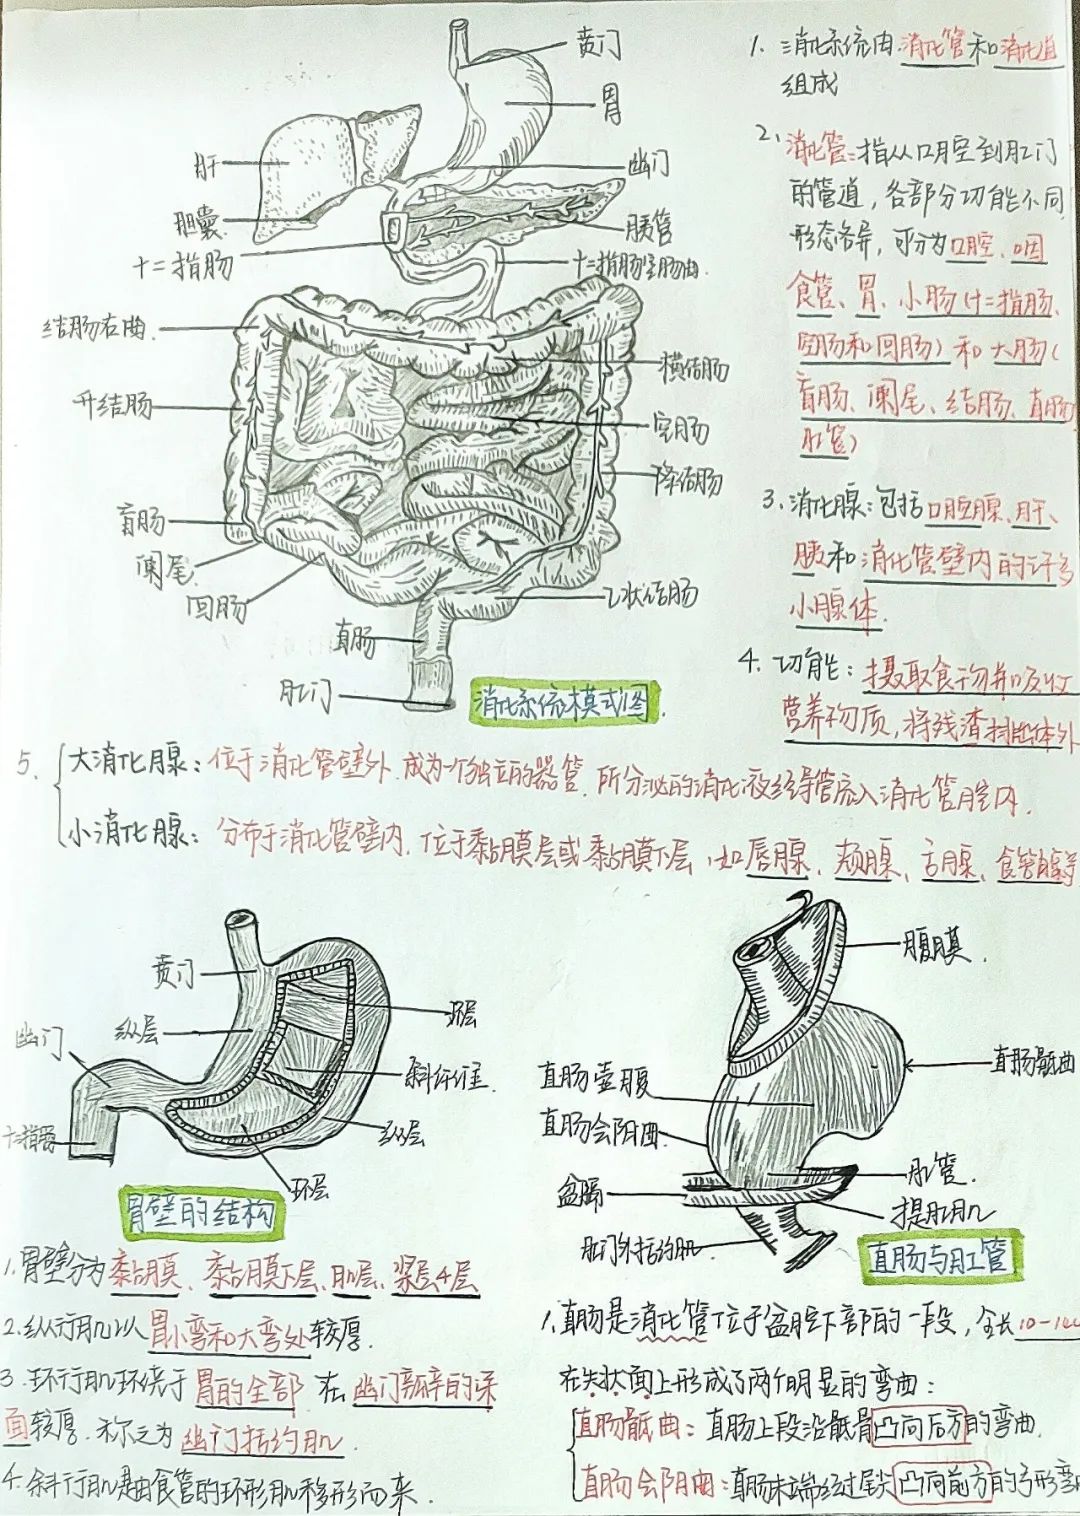 贲门
胃
肝
幽门
胆囊
胰管
十二指肠
十二指肠空肠曲.
结肠右曲.
横结肠
升结肠
空肠
降结肠
盲肠
阑尾.
回肠
乙状结肠
直肠
肛门
消化系统模式图.
1. 消化系统由消化管和消化
组成
2、消化管:指从口腔到肛门
的管道，各部分功能不同
形态各异，可分为口腔、咽
食管、胃、小肠(十二指肠、
空肠和回肠) 和大肠(
盲肠、阑尾、结肠、直肠
肛管)
3、消化腺:包括口腔腺、肝、
胰和消化管壁内的许多
小腺体.
4. 功能: 摄取食物并吸收
营养物质，将残渣排出体外
5、大消化腺: 位于消化管壁外.成为一个独立的器管.所分泌的消化液经导管流入消化管腔内.
小消化腺: 分布于消化管壁内.位于黏膜层或黏膜下层，如唇腺、颊腺、舌腺、食管腺等
贲门
幽门
纵层
环层
斜纤维.
纵层
环层
胃壁的结构
1.胃壁分为黏膜、黏膜下层、肌层、浆层4层
2.纵行肌以胃小弯和大弯处较厚.
3.环行肌环绕于胃的全部.在幽门瓣的深
面较厚.称之为幽门括约肌.
4.斜行肌是由食管的环形肌移形而来.
腹膜.
直肠骶曲
直肠壶腹
直肠会阴曲.
盆膈
肛管.
提肛肌
肛门外括约肌.
直肠与肛管
1.直肠是消化管位于盆腔下部的一段，全长10-14
在矢状面上形成了两个明显的弯曲:
直肠骶曲: 直肠上段沿骶骨凸向后方的弯曲.
直肠会阴曲:直肠末端绕过尾尖凸向前方的弓形弯